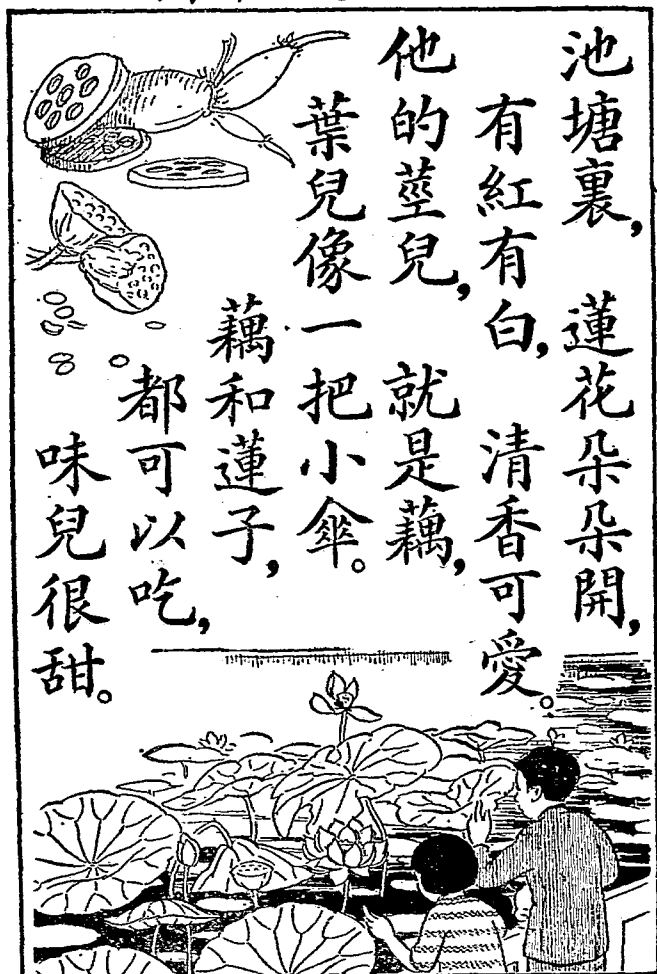 池塘裏，蓮花朵朵開，
有紅有白，清香可愛。
他的莖兒，就是藕，
葉兒像一把小傘。
藕和蓮子，
都可以吃，
味兒很甜。